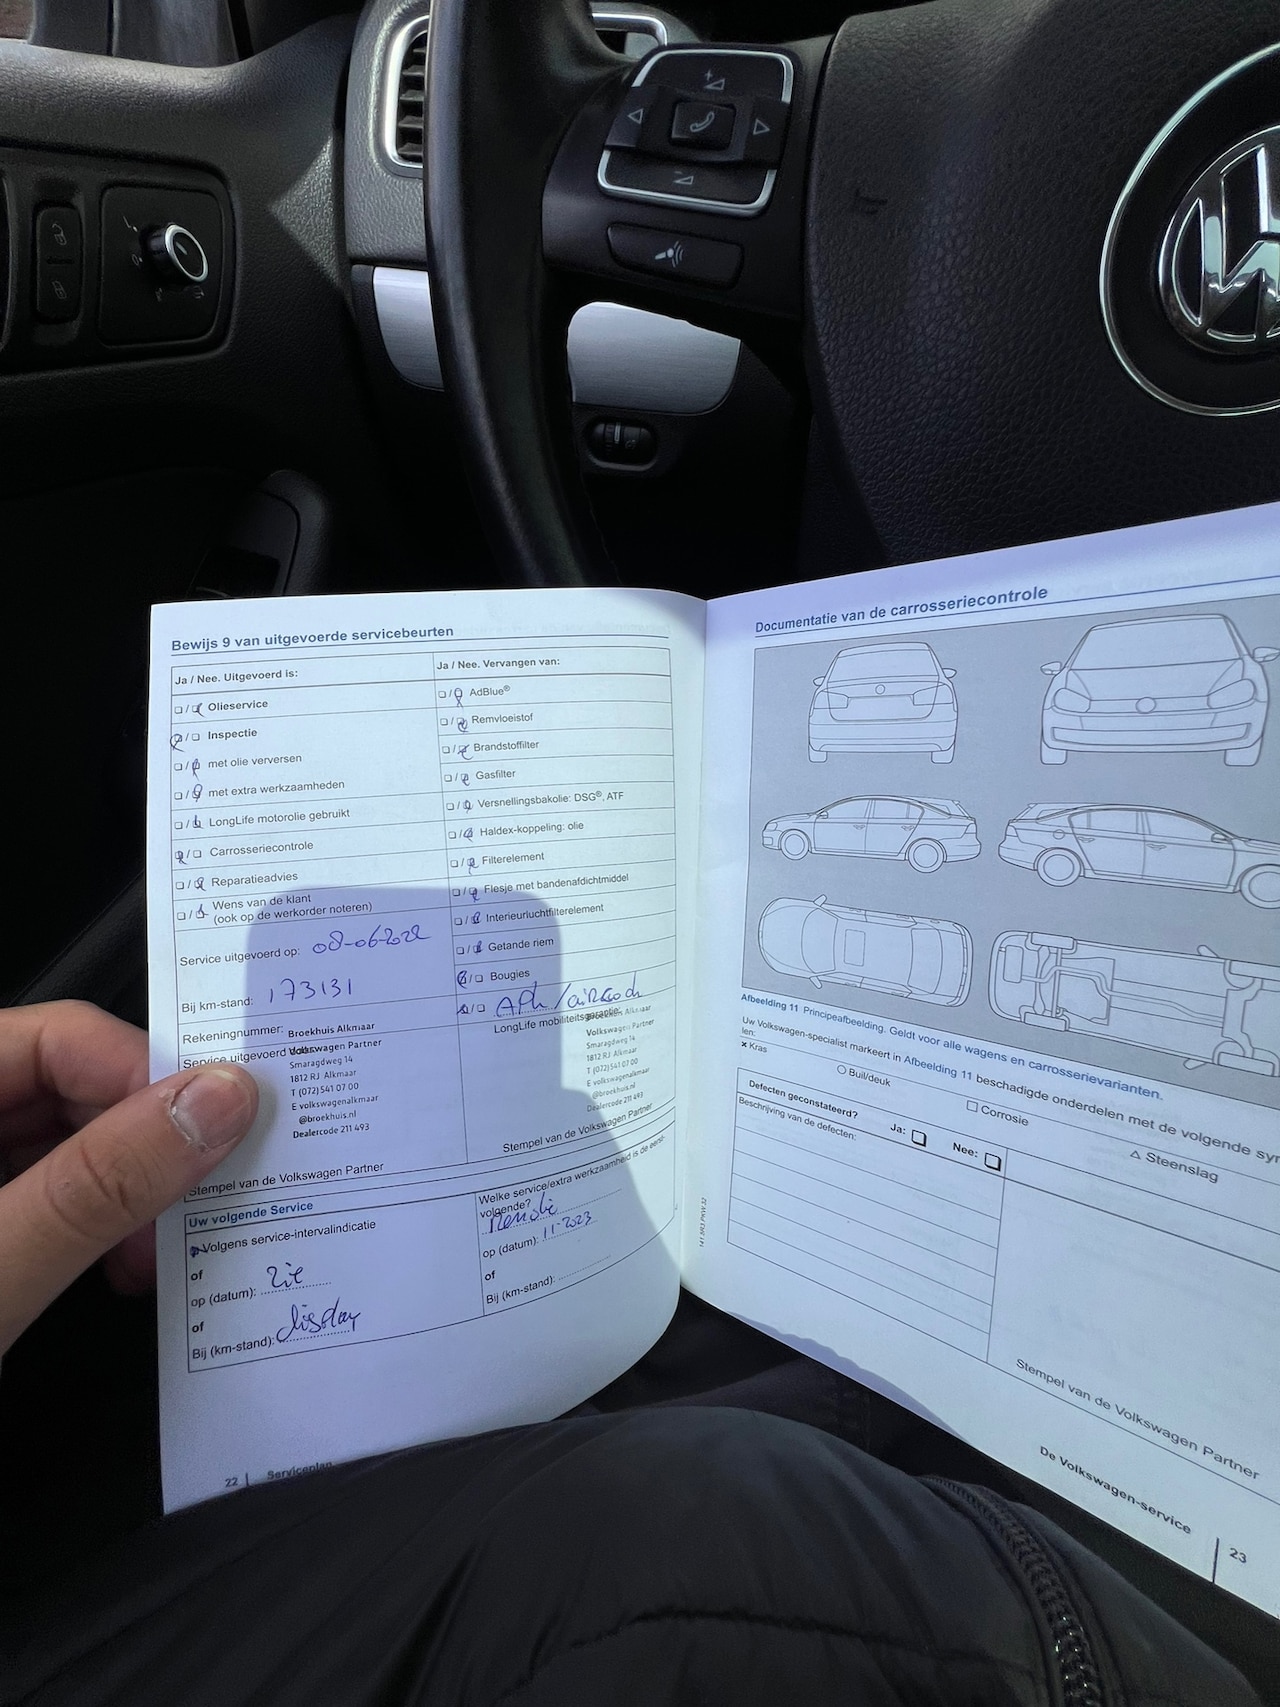 Bewijs 9 van uitgevoerde servicebeurten
Ja / Nee. Uitgevoerd is:
Olieservice
Inspectie
met olie verversen
met extra werkzaamheden
LongLife motorolie gebruikt
Carrosseriecontrole
Reparatieadvies
Wens van de klant
(ook op de werkorder noteren)
Service uitgevoerd op: 08-06-2022
Bij km-stand: 173131
Rekeningnummer:
Service uitgevoerd door:
Broekhuis Alkmaar
Volkswagen Partner
Smaragdweg 14
1812 RJ Alkmaar
T (072) 541 07 00
E volkswagenalkmaar
@broekhuis.nl
Dealercode 211 493
Stempel van de Volkswagen Partner
Ja / Nee. Vervangen van:
AdBlue®
Remvloeistof
Brandstoffilter
Gasfilter
Versnellingsbakolie: DSG®, ATF
Haldex-koppeling: olie
Filterelement
Flesje met bandenafdichtmiddel
Interieurluchtfilterelement
Getande riem
Bougies
LongLife mobiliteitsgarantie
Broekhuis Alkmaar
Volkswagen Partner
Smaragdweg 14
1812 RJ Alkmaar
T (072) 541 07 00
E volkswagenalkmaar
@broekhuis.nl
Dealercode 211 493
Stempel van de Volkswagen Partner
Uw volgende Service
Volgens service-intervalindicatie
of
op (datum): Zie
of
Bij (km-stand): display
Welke service/extra werkzaamheid is de eerst-
volgende?
op (datum): 11-2023
of
Bij (km-stand):
22 | Serviceplan
Documentatie van de carrosseriecontrole
Afbeelding 11 Principeafbeelding. Geldt voor alle wagens en carrosserievarianten.
Uw Volkswagen-specialist markeert in Afbeelding 11 beschadigde onderdelen met de volgende
len:
× Kras
○ Buil/deuk
□ Corrosie
△ Steenslag
Defecten geconstateerd?
Ja: Nee:
Beschrijving van de defecten:
Stempel van de Volkswagen Partner
De Volkswagen-service | 23